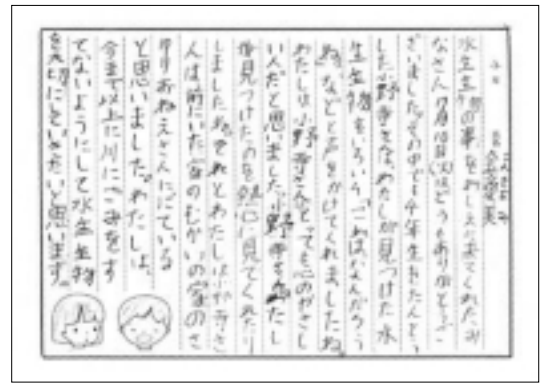 水生生物の事をおしえて来てくれたみ
なさん7月　日　はどうもありがとうご
ざいました。その中でも4年生をたんとう
した小野寺さんは、わたしが見つけた水
生生物をいろいろ「これはなんだろう
ね。」などと声をかけてくれましたね。
わたしは小野寺さんがとっても心のやさし
い人だと思いました。小野寺さん
見つけたのを熱心に見てくれたり
しましたね。それとわたしは小野寺さ
んは前にいた家のむかいの家のさ
おねえさんににているな
と思いました。わたしは、
今まで以上に川にごみをす
てないようにして水生生物
を大切にしていきたいと思います。